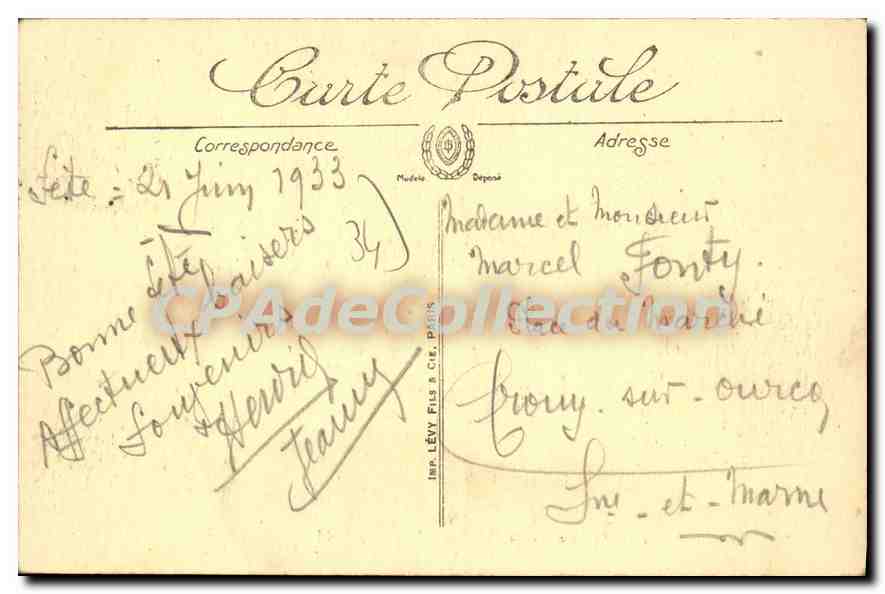 Carte Postale
Correspondance
Adresse
Modèle Déposé
21 Juin 1933
34
Bonne fête
Affectueux baisers
Souvenirs
Henri
Jeanny
IMP. LÉVY FILS & CIE, PARIS
Madame et Monsieur
Marcel Fonty.
Place du Marché
Crouy-sur-Ourcq
Sne-et-Marne
CPAdeCollection